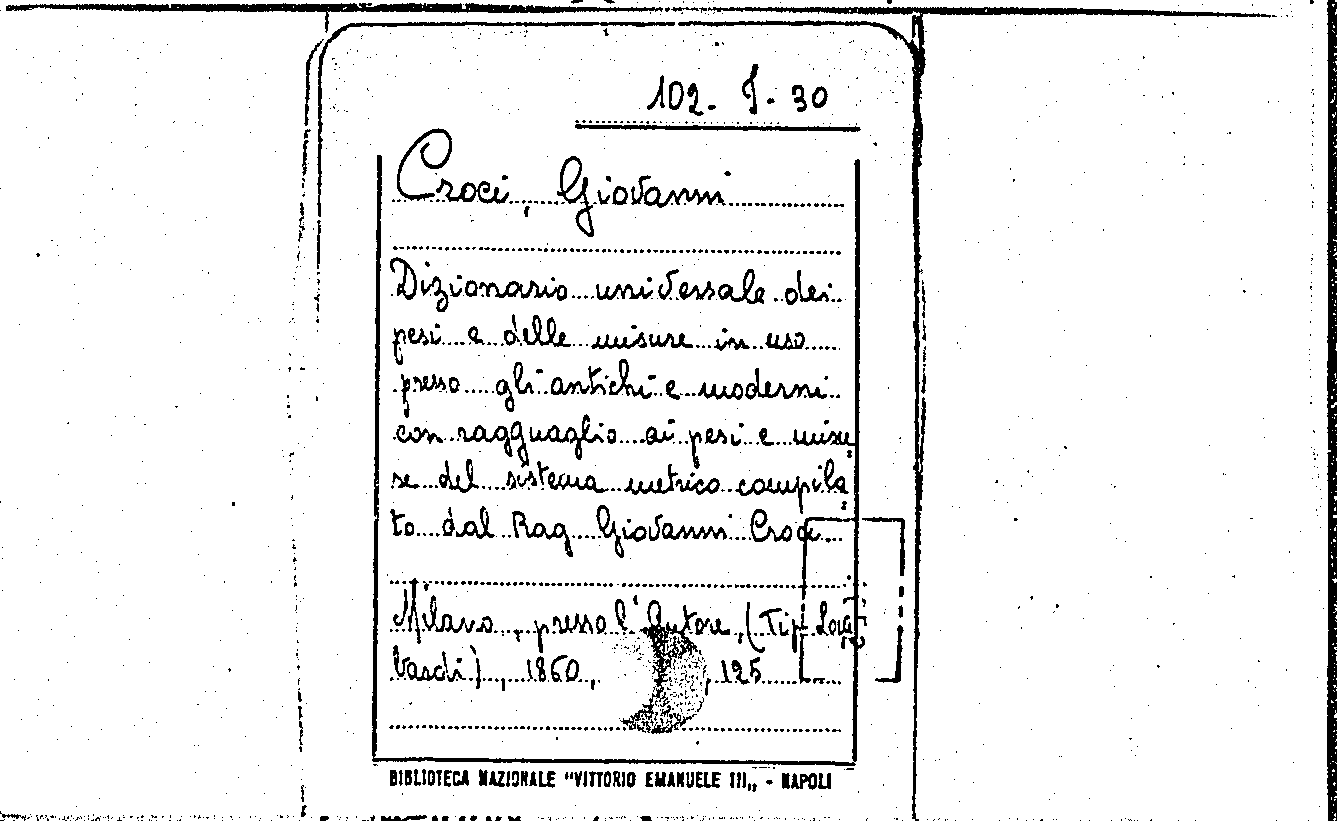 102. J. 30
Croci, Giovanni
Dizionario universale dei
pesi e delle misure in uso
presso gli antichi e moderni
con ragguaglio ai pesi e misu=
re del sistema metrico compila=
to dal Rag Giovanni Croci
Milano, presso l'Autore, (Tip.
vardi), 1860, 125
BIBLIOTECA NAZIONALE "VITTORIO EMANUELE III„ - NAPOLI